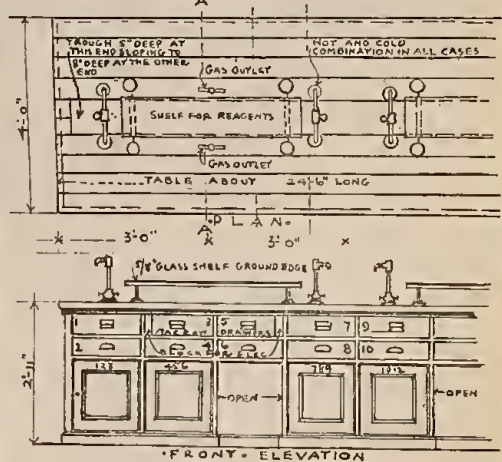 A
TROUGH 5" DEEP AT
THIS END SLOPING TO
8" DEEP AT THE OTHER
END
HOT AND COLD
COMBINATION IN ALL CASES
GAS OUTLET
4'-0"
SHELF FOR REAGENTS
GAS OUTLET
TABLE ABOUT 24'-6" LONG
A
·PLAN·
3'-0"
3'-0"
5/8" GLASS SHELF GROUND EDGE
2'-11"
1
3
5
7
9
NARROW DRAWERS
2
4
6
8
10
BLOCK FOR ELEC
456
789
OPEN
OPEN
·FRONT· ELEVATION